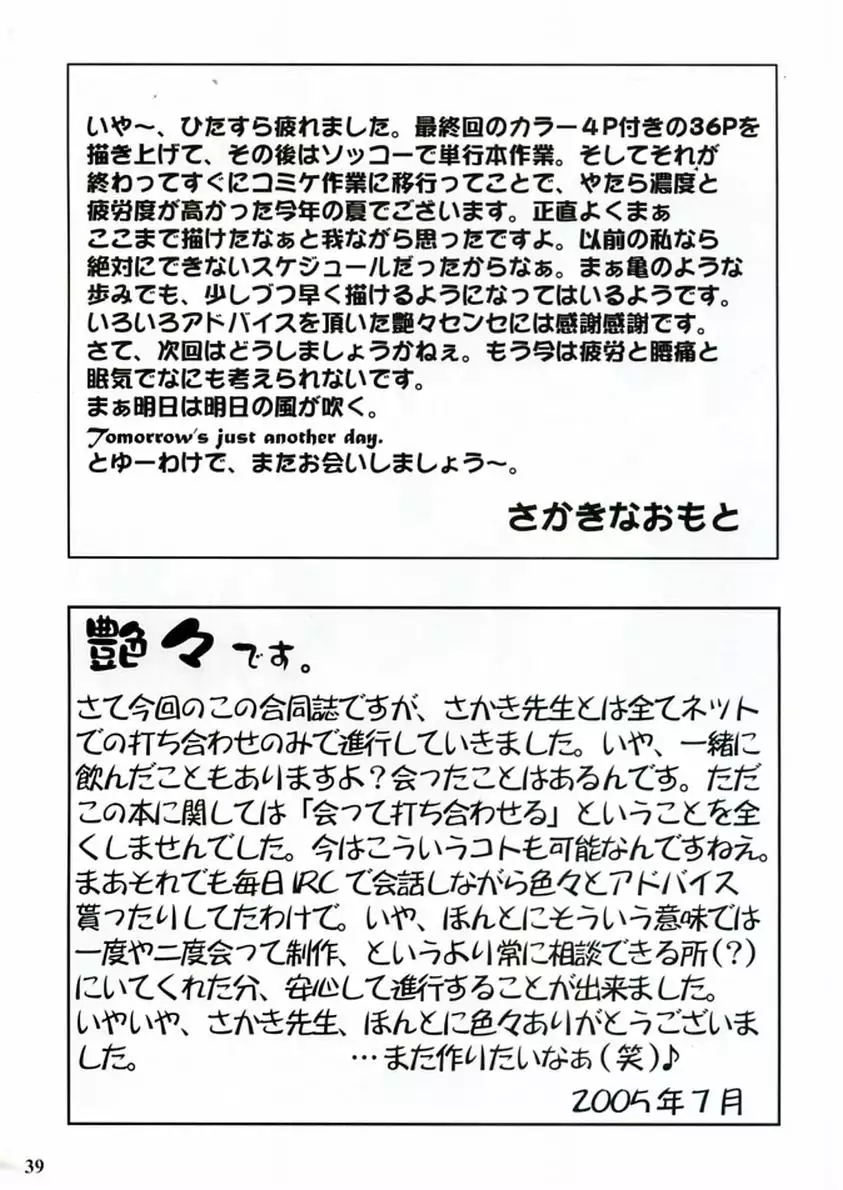 いや～、ひたすら疲れました。最終回のカラー４P付きの３６Pを
描き上げて、その後はソッコーで単行本作業。そしてそれが
終わってすぐにコミケ作業に移行ってことで、やたら濃度と
疲労度が高かった今年の夏でございます。正直よくまぁ
ここまで描けたなぁと我ながら思ったですよ。以前の私なら
絶対にできないスケジュールだったからなぁ。まぁ亀のような
歩みでも、少しづつ早く描けるようになってはいるようです。
いろいろアドバイスを頂いた艶々センセには感謝感謝です。
さて、次回はどうしましょうかねぇ。もう今は疲労と腰痛と
眠気でなにも考えられないです。
まぁ明日は明日の風が吹く。
Tomorrow's just another day.
とゆーわけで、またお会いしましょう～。
さかきなおもと
艶々です。
さて今回のこの合同誌ですが、さかき先生とは全てネット
での打ち合わせのみで進行していきました。いや、一緒に
飲んだこともありますよ？会ったことはあるんです。ただ
この本に関しては「会って打ち合わせる」ということを全
くしませんでした。今はこういうコトも可能なんですねえ。
まあそれでも毎日IRCで会話しながら色々とアドバイス
貰ったりしてたわけで。いや、ほんとにそういう意味では
一度や二度会って制作、というより常に相談できる所（？）
にいてくれた分、安心して進行することが出来ました。
いやいや、さかき先生、ほんとに色々ありがとうございま
した。　　　　　　　　…また作りたいなぁ（笑）♪
2005年7月
39